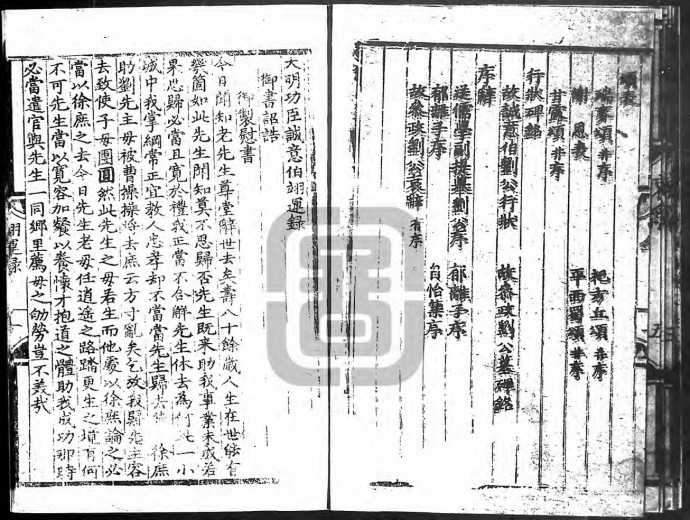 頌表
瑞麥頌并序 祀方丘頌并序
謝恩表 平西蜀頌并序
甘露頌并序
行狀碑銘
故誠意伯劉公行狀 故參政劉公墓碑銘
序辭
送儒學副提舉劉公序 郁離子序
郁離子序 自怡集序
故參政劉公哀辭 有序
大明功臣誠意伯翊運錄
御書詔誥
御製慰書
今日聞知老先生尊堂辭世去矣壽八十餘歲人生在世能有
幾箇如此先生聞知莫不思歸否先生既來助我事業未成若
果思歸必當且寬於禮我正當不合解先生休去為何此一小
城中我掌綱常正宜教人忠孝却不當當先生歸去 徐庶
助劉先主母被曹操操將去庶云方寸亂矣乞放我歸先主容
去致使子母團圓然此先生之母若生而他處以徐庶論之必
當以徐庶之去今日先生老母任逍遙之路踏更生之境有何
不可先生當以寬容加餐以養懷才抱道之體助我成功那時
必當遣官與先生一同鄉里薦母之劬勞豈不美哉
翊運錄 一